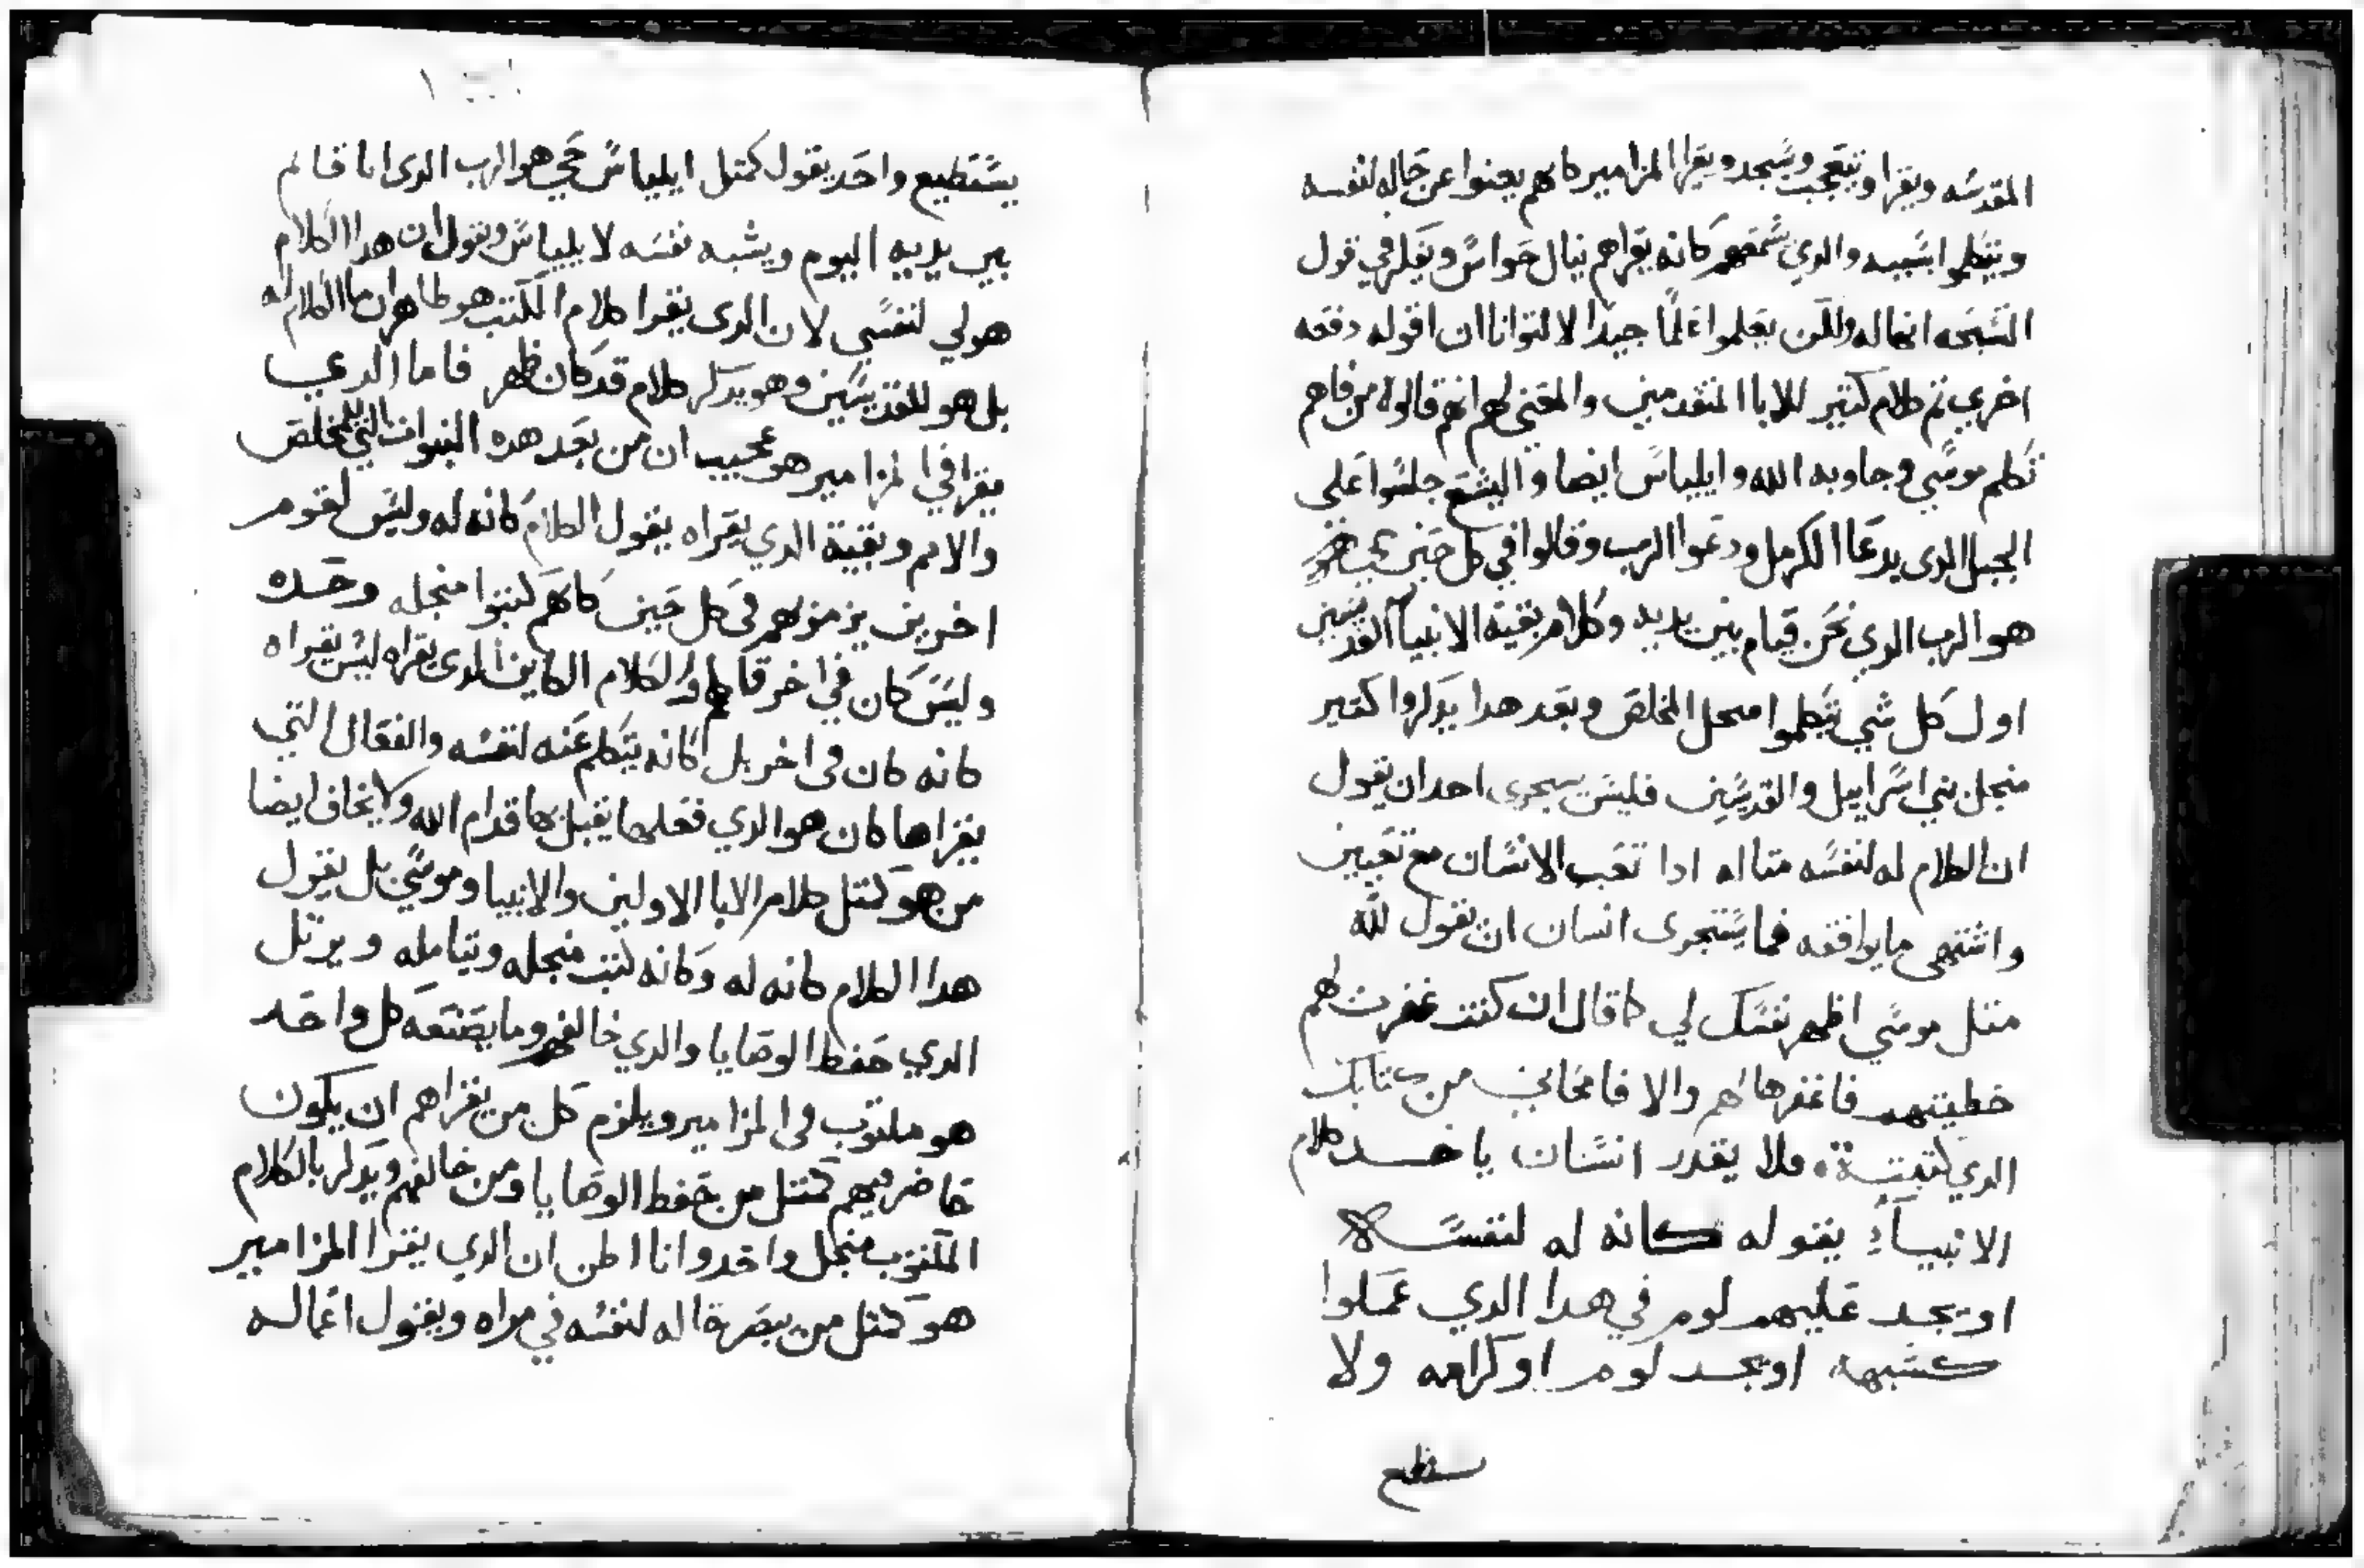 المقدسه ويقرا ويتعجب ويسجد ويقرا المزامير كانهم يعنوا عن حاله لنفسه
ويتكلموا بسببه والدي سمعهم كانه يقراهم ينال حواس ويفكر في قول
التسبحه انها له ولكن يعلموا علما جيدا لا لتوانا ان اقوله دفعه
اخري تم كلام كتير للابا المتقدمين والمعني لهم انهم قالوه من فاهم
تكلم موسي وجاوبه الله وايلياس ايضا واليشع جلسوا علي
الجبل الدي يدعا الكرمل ودعوا الرب وقالوا في كل حين حي
هو الرب الدي نحن قيام بين يديه وكلام بقية الانبيا القديسين
اول كل شي تكلموا منجل المخلص وبعد هدا يدكروا كتير
منجل بني اسراييل والقديسين فليس يجري احد ان يقول
ان الكلام له لنفسه متاله ادا تعب الانسان مع تعبين
واشتهي ما يوافقه فما يستجري انسان ان يقول لله
متل موسي اظهر نفسك لي كما قال ان كنت غفرت لهم
خطيتهم فاغفرها لهم والا فامحاني من كتابك
الدي كتبته فلا يقدر انسان ياخد كلام
الانبياء يقوله كانه له لنفسه
او يجد عليهم لوم في هدا الدي عملوا
كشبهه او يجد لوم او كرامه ولا
سطيع
يستطيع واحد يقول كمتل ايلياس حي هو الرب الدي انا قايم
بين يديه اليوم ويشبه نفسه لايلياس ويقول ان هدا الكلام
هو لي لنفسي لان الدي يقرا كلام الكتب هو ظاهر ان ما الكلام له
بل هو للقديسين وهو يدكر كلام قد كان ظهر فاما الدي
يقرا في المزامير هو عجيب ان من بعد هده النبوات التي للمخلص
والامم وبقية الدي يقراه يقول الكلام كانه له وليس لقوم
اخرين يزمزهم في كل حين كانهم كتبوا منجله وحده
وليس كان في اخر قالهم والكلام الكاين الدي يقراه ليس يقراه
كانه كان في اخر بل كانه يتكلم عنه لنفسه والفعال التي
يقراها كان هو الدي فعلها يقبل بها قدام الله ولا يخاف ايضا
من هو كمتل كلام الابا الاولين والانبيا وموسي بل يقول
هدا الكلام كانه له وكانه كتب منجله ويتامله ويرتل
الدي حفظ الوصايا والدي خالفهم وما يصنعه كل واحد
هو مكتوب في المزامير ويلزم كل من يقراهم ان يكون
حاضر فيهم كمتل من حفظ الوصايا ومن خالفهم ويدكر بالكلام
المكتوب منجل واحد وانا اظن ان الدي يقرا المزامير
هو كمتل من يبصر حاله لنفسه في مراه ويقول اعماله